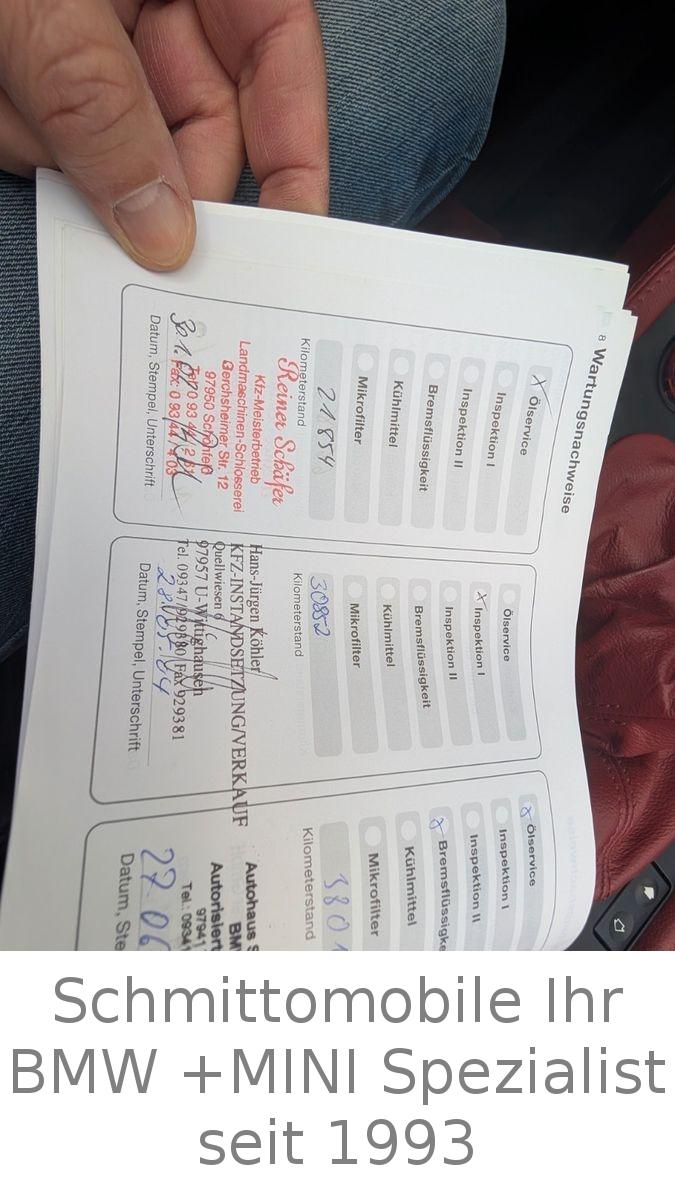 8 Wartungsnachweise
X Ölservice
Inspektion I
Inspektion II
Bremsflüssigkeit
Kühlmittel
Mikrofilter
21854
Kilometerstand
Reiner Schäfer
Kfz-Meisterbetrieb
Landmaschinen-Schlosserei
Gerchsheimer Str. 12
97950
Datum, Stempel, Unterschrift
Ölservice
X Inspektion I
Inspektion II
Bremsflüssigkeit
Kühlmittel
Mikrofilter
30852
Kilometerstand
Hans-Jürgen Köhler
KFZ-INSTANDSETZUNG/VERKAUF
Quellwiesen
97957 U-Wittighausen
Tel. 09347/929380/Fax 929381
Datum, Stempel, Unterschrift
X Ölservice
Inspektion I
Inspektion II
X Bremsflüssigke
Kühlmittel
Mikrofilter
380
Kilometerstand
Autohaus S
BM
Autorisiert
97941
Tel.: 09341
27.06
Datum, Ste
Schmittomobile Ihr
BMW +MINI Spezialist
seit 1993